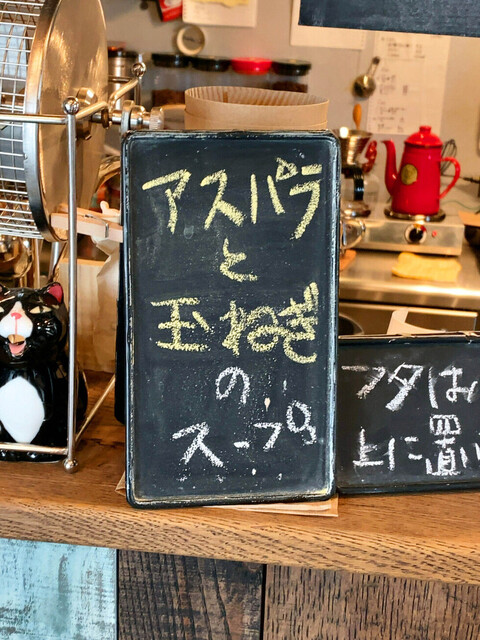 アスパラ
と
玉ねぎ
の
スープ
フタは
上に置い